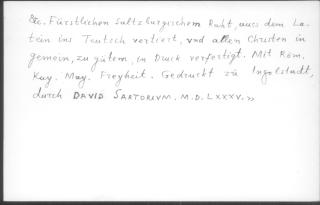 &c. Fürstlichen Saltzburgischem Raht, auss dem La-
tein ins Teutsch vertiert, vnd allen Christen in
gemein, zu gütem, in Druck verfertigt. Mit Röm.
Kay. May. Freyheit. Gedruckt zů Ingolstadt,
durch DAVID SARTORIVM. M.D.LXXXV.»